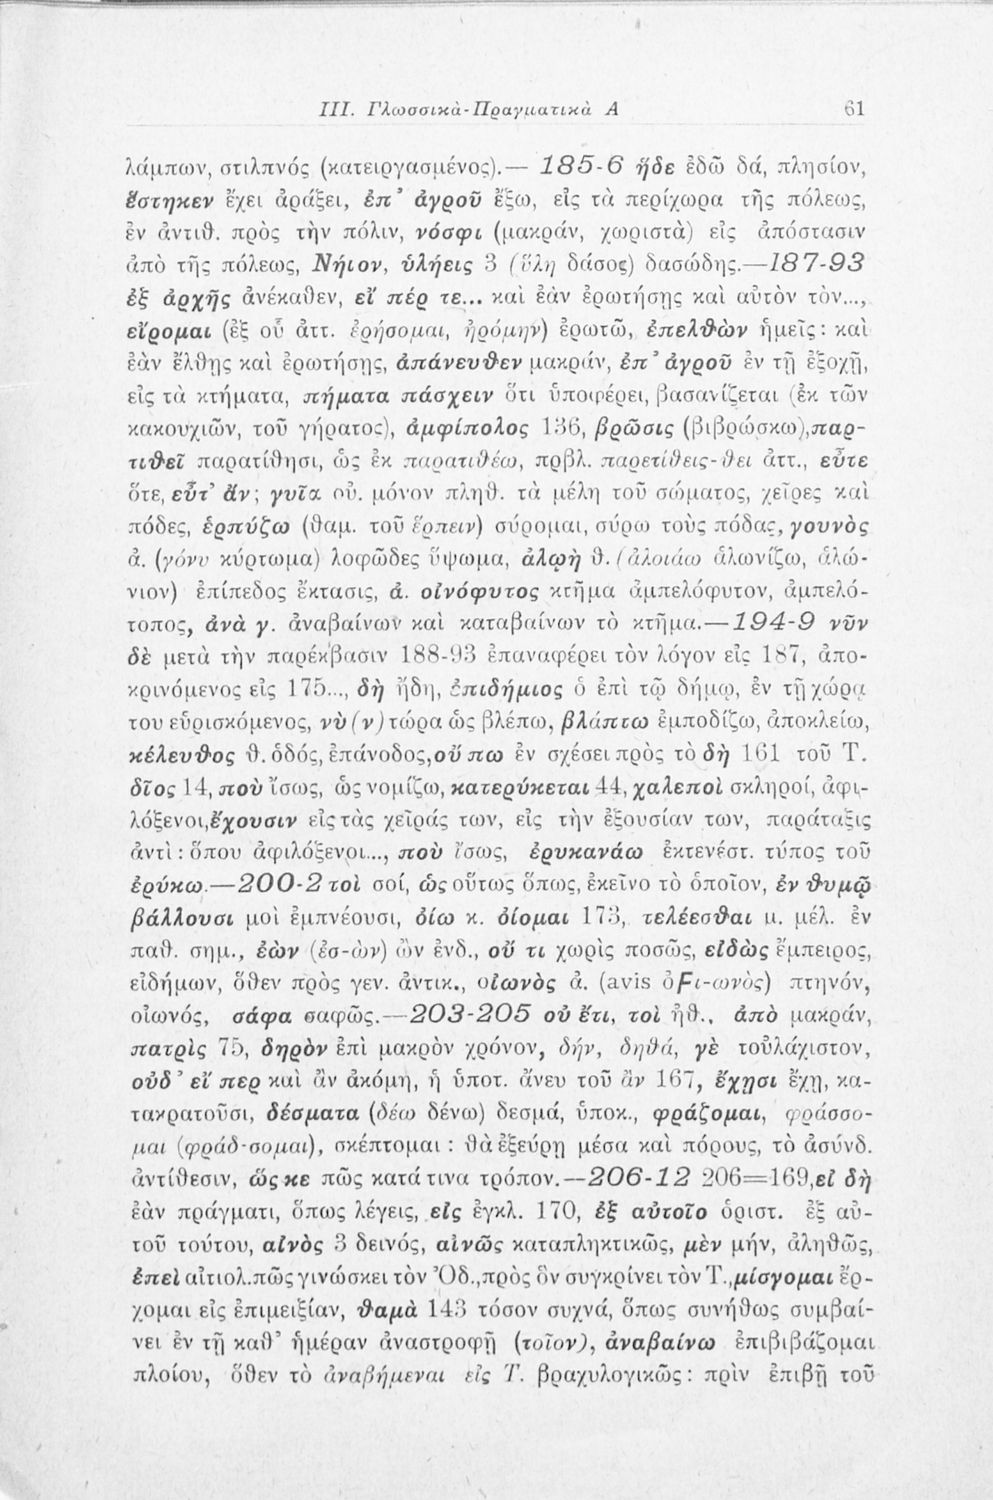 III. Γλωσσικὰ-Πραγματικὰ Α 61
λάμπων, στιλπνός (κατειργασμένος).— 185-6 ἥδε ἐδῶ δά, πλησίον,
ἕστηκεν ἔχει ἀράξει, ἐπ᾽ ἀγροῦ ἔξω, εἰς τὰ περίχωρα τῆς πόλεως,
ἐν ἀντιθ. πρὸς τὴν πόλιν, νόσφι (μακράν, χωριστὰ) εἰς ἀπόστασιν
ἀπὸ τῆς πόλεως, Νήιον, ὑλήεις 3 (ὕλη δάσος) δασώδης.—187-93
ἐξ ἀρχῆς ἀνέκαθεν, εἴ πέρ τε... καὶ ἐὰν ἐρωτήσῃς καὶ αὐτὸν τὸν...,
εἴρομαι (ἐξ οὗ ἀττ. ἐρήσομαι, ἠρόμην) ἐρωτῶ, ἐπελθὼν ἡμεῖς: καὶ
ἐὰν ἔλθῃς καὶ ἐρωτήσῃς, ἀπάνευθεν μακράν, ἐπ᾽ ἀγροῦ ἐν τῇ ἐξοχῇ,
εἰς τὰ κτήματα, πήματα πάσχειν ὅτι ὑποφέρει, βασανίζεται (ἐκ τῶν
κακουχιῶν, τοῦ γήρατος), ἀμφίπολος 136, βρῶσις (βιβρώσκω),παρ-
τιθεῖ παρατίθησι, ὡς ἐκ παρατιθέω, πρβλ. παρετίθεις-θει ἀττ., εὖτε
ὅτε, εὖτ᾽ ἄν; γυῖα οὐ. μόνον πληθ. τὰ μέλη τοῦ σώματος, χεῖρες καὶ
πόδες, ἑρπύζω (θαμ. τοῦ ἕρπειν) σύρομαι, σύρω τοὺς πόδας, γουνὸς
ἀ. (γόνυ κύρτωμα) λοφῶδες ὕψωμα, ἀλωὴ θ. (ἀλοιάω ἁλωνίζω, ἁλώ-
νιον) ἐπίπεδος ἔκτασις, ἀ. οἰνόφυτος κτῆμα ἀμπελόφυτον, ἀμπελό-
τοπος, ἀνὰ γ. ἀναβαίνων καὶ καταβαίνων τὸ κτῆμα.—194-9 νῦν
δὲ μετὰ τὴν παρέκβασιν 188-93 ἐπαναφέρει τὸν λόγον εἰς 187, ἀπο-
κρινόμενος εἰς 175..., δὴ ἤδη, ἐπιδήμιος ὁ ἐπὶ τῷ δήμῳ, ἐν τῇ χώρᾳ
του εὑρισκόμενος, νὺ(ν) τώρα ὡς βλέπω, βλάπτω ἐμποδίζω, ἀποκλείω,
κέλευθος θ. ὁδός, ἐπάνοδος, οὔ πω ἐν σχέσει πρὸς τὸ δὴ 161 τοῦ Τ.
δῖος 14, ποὺ ἴσως, ὡς νομίζω, κατερύκεται 44, χαλεποὶ σκληροί, ἀφι-
λόξενοι, ἔχουσιν εἰς τὰς χεῖράς των, εἰς τὴν ἐξουσίαν των, παράταξις
ἀντὶ: ὅπου ἀφιλόξενοι..., ποὺ ἴσως, ἐρυκανάω ἐκτενέστ. τύπος τοῦ
ἐρύκω.—200-2 τοὶ σοί, ὡς οὕτως ὅπως, ἐκεῖνο τὸ ὁποῖον, ἐν θυμῷ
βάλλουσι μοὶ ἐμπνέουσι, ὀίω κ. ὀίομαι 173, τελέεσθαι μ. μέλ. ἐν
παθ. σημ., ἐὼν (ἐσ-ὼν) ὢν ἐνδ., οὔ τι χωρὶς ποσῶς, εἰδὼς ἔμπειρος,
εἰδήμων, ὅθεν πρὸς γεν. ἀντικ., οἰωνὸς ἀ. (avis ὀϝι-ωνὸς) πτηνόν,
οἰωνός, σάφα σαφῶς.—203-205 οὐ ἔτι, τοὶ ἠθ., ἀπὸ μακράν,
πατρὶς 75, δηρὸν ἐπὶ μακρὸν χρόνον, δήν, δηθά, γὲ τοὐλάχιστον,
οὐδ᾽ εἴ περ καὶ ἂν ἀκόμη, ἡ ὑποτ. ἄνευ τοῦ ἂν 167, ἔχῃσι ἔχῃ, κα-
τακρατοῦσι, δέσματα (δέω δένω) δεσμά, ὑποκ., φράζομαι, φράσσο-
μαι (φράδ-σομαι), σκέπτομαι: θὰ ἐξεύρῃ μέσα καὶ πόρους, τὸ ἀσύνδ.
ἀντίθεσιν, ὥς κε πῶς κατά τινα τρόπον.—206-12 206=169, εἰ δὴ
ἐὰν πράγματι, ὅπως λέγεις, εἰς ἐγκλ. 170, ἐξ αὐτοῖο ὁριστ. ἐξ αὐ-
τοῦ τούτου, αἰνὸς 3 δεινός, αἰνῶς καταπληκτικῶς, μὲν μήν, ἀληθῶς,
ἐπεὶ αἰτιολ. πῶς γινώσκει τὸν Ὀδ., πρὸς ὃν συγκρίνει τὸν Τ., μίσγομαι ἔρ-
χομαι εἰς ἐπιμειξίαν, θαμὰ 143 τόσον συχνά, ὅπως συνήθως συμβαί-
νει ἐν τῇ καθ᾽ ἡμέραν ἀναστροφῇ (τοῖον), ἀναβαίνω ἐπιβιβάζομαι
πλοίου, ὅθεν τὸ ἀναβήμεναι εἰς Τ. βραχυλογικῶς: πρὶν ἐπιβῇ τοῦ